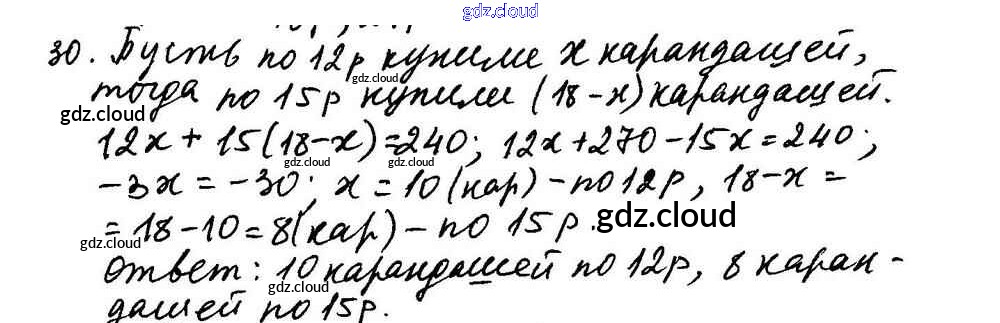 gdz.cloud
30. Пусть по 12р купили x карандашей,
gdz.cloud
тогда по 15р купили (18-x) карандашей.
gdz.cloud
12x + 15(18-x)=240; 12x+270-15x=240;
gdz.cloud gdz.cloud
-3x = -30; x = 10(кар) - по 12р, 18-x =
gdz.cloud
= 18-10=8(кар) - по 15р.
gdz.cloud
Ответ: 10 карандашей по 12р, 8 каран-
gdz.cloud
дашей по 15р.